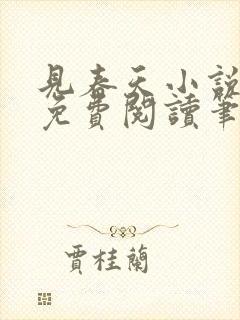 見春天小說
免費閱讀筆
賈桂蘭